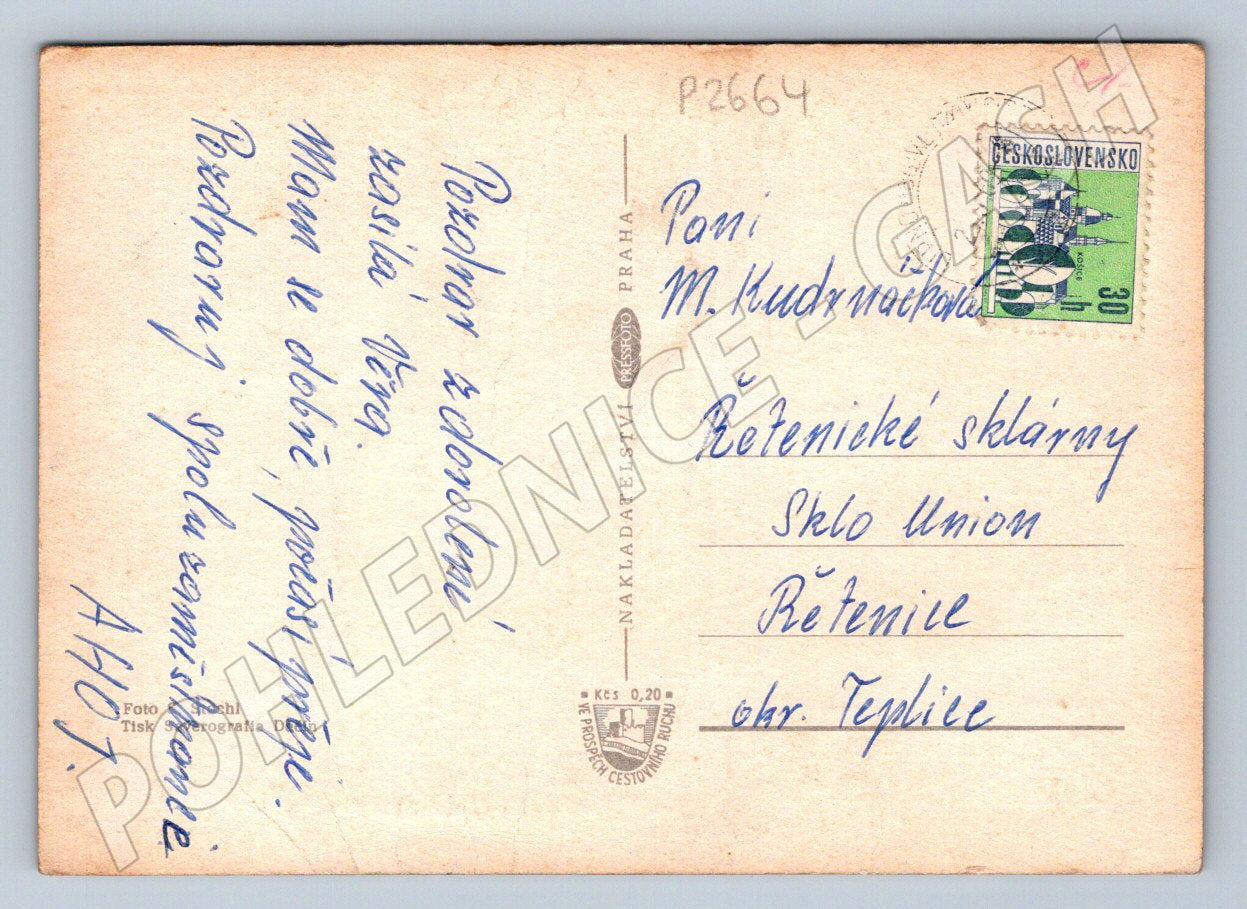 P2664
Pozdrav z dovolení
zasílá Věra.
Mam se dobře, počasí přeje.
Pozdravuj spoluzaměstnance
AHOJ.
Foto Stuchl
Tisk Severografia Děčín
NAKLADATELSTVÍ PRESSFOTO PRAHA
Kčs 0,20
VE PROSPĚCH CESTOVNÍHO RUCHU
ČESKOSLOVENSKO
KOŠICE
30 h
Paní
M. Kudrnáčková
Řetenické sklárny
Sklo Union
Řetenice
okr. Teplice
POHLEDNICE - GACH